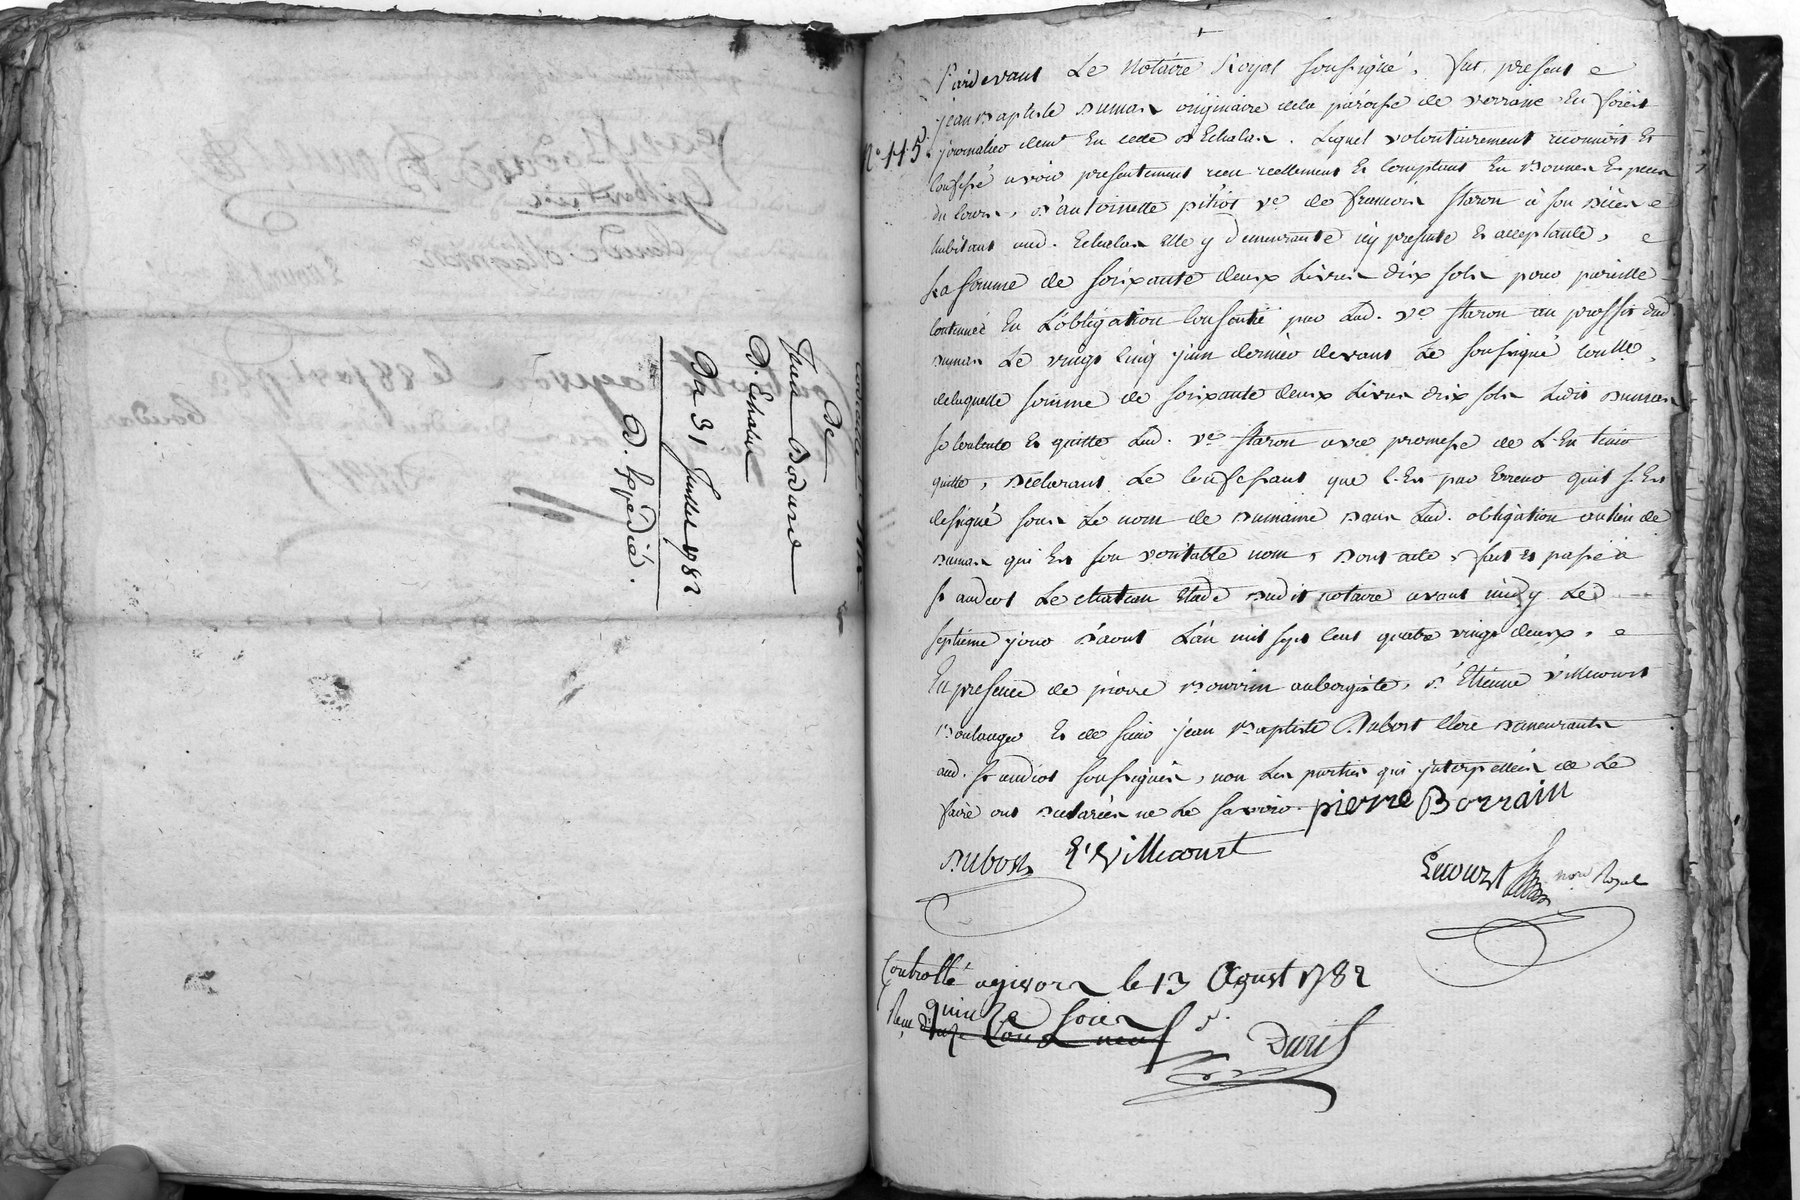 De
Jean Bodurne
D'Echalas
Du 31 Juillet 1782
Expédié.
N.° 115
Pardevant Le Notaire Royal soussigné, fut present
jean Baptiste Dumas originaire dela paroisse de verrane En forêst
journalier demt En cette D'Echalas. Lequel volontairement reconnoit Et
confesse avoir presentement recu reellement Et comptant En Bonnes Espèces
du cours, D'antoinette pitiot v.e de francois Staron à son décès
habitant aud. Echalas Elle y demeurante icy presente Et acceptante,
La somme de soixante deux Livres dix sols pour pareille
contenuë En L'obligation consentie par Lad. v.e Staron au proffit dud
Dumas Le vingt cinq juin dernier devant Le soussigné
delaquelle somme de soixante deux Livres dix sols Ledit Dumas
se contente Et quitte Lad. v.e Staron avec promesse de L'En tenir
quitte, Declarant Le confessant que C'Est par Erreur qu'il s'Est
designé sous Le nom de Dumaine Dans Lad. obligation aulieu de
Dumas qui Est son veritable nom, Dont acte, fait et passé à
St andeol Le chateau Etude Dudit notaire avant midy Le
septième jour D'aout L'an mil sept cent quatre vingt deux,
En presence de pierre Bourrin aubergiste, D'Etienne Villecourt
Boulanger Et de sieur jean Baptiste Dubost Clerc Demeurants
aud. St andeol soussignés, non Les parties qui interpellées de Le
faire ont Declarées ne Le savoir. pierre Borrain
Dubost E. Villecourt
Lecourt nore Royal
Controllé a givors le 13 Aoust 1782
Reçu quinze sols
Duril